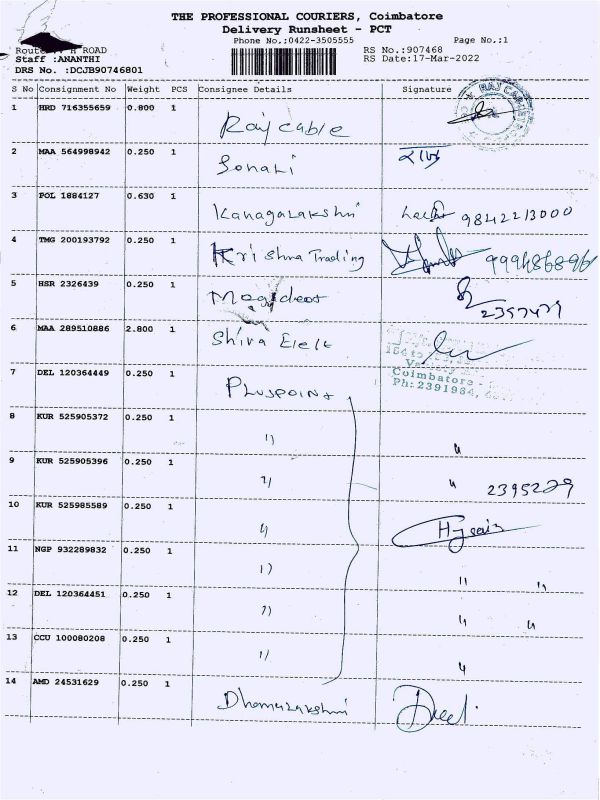 THE PROFESSIONAL COURIERS, Coimbatore
Delivery Runsheet - PCT
Phone No.:0422-3505555 Page No.:1
H ROAD RS No.:907468
Staff :ANANTHI RS Date:17-Mar-2022
DRS No. :DCJB90746801
S No Consignment No Weight PCS Consignee Details Signature
1 HRD 716355659 0.800 1 Raj cable
2 MAA 564998942 0.250 1 Sonali
3 POL 1884127 0.630 1 Kanagalakshmi 9842213000
4 TMG 200193792 0.250 1 Krishna Trading
5 HSR 2326439 0.250 1
6 MAA 289510886 2.800 1 Shiva Elect
Coimbatore -
Ph: 2391984,
7 DEL 120364449 0.250 1 Pluspoint
8 KUR 525905372 0.250 1 1) "
9 KUR 525905396 0.250 1 " " 2395229
10 KUR 525985589 0.250 1 "
11 NGP 932289832 0.250 1 1) " "
12 DEL 120364451 0.250 1 " " "
13 CCU 100080208 0.250 1 1) "
14 AMD 24531629 0.250 1 Dhanalakshmi